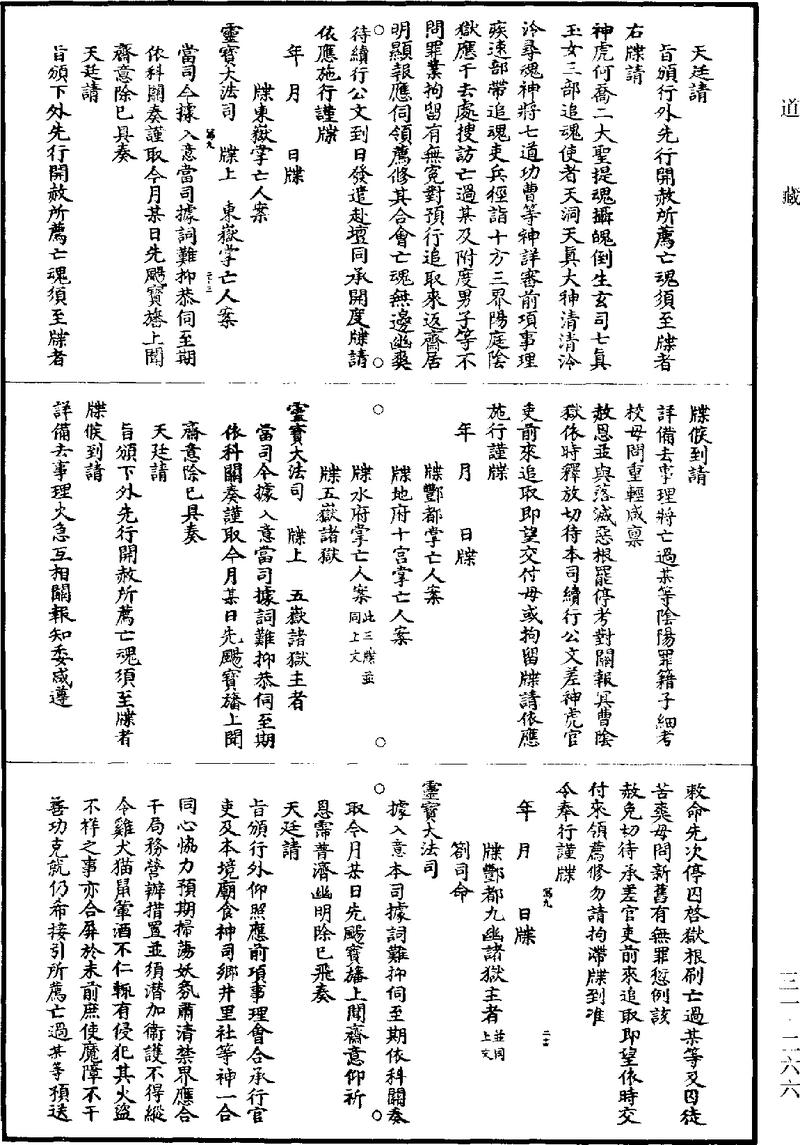 道藏
天廷請
旨頒行外先行開赦所薦亡魂須至牒者
右牒請
神虎何喬二大聖提魂攝魄倒生玄司七真
玉女三部追魂使者天洞天真大神清清泠
泠尋魂神將七道功曹等神詳審前項事理
疾速部帶追魂吏兵徑詣十方三界陽庭陰
獄應干去處搜訪亡過某及附度男子等不
問罪業拘留有無寃對預行追取來返齋居
明顯報應伺領薦修其合會亡魂無邊幽爽
待續行公文到日發遣赴壇同承開度牒請
依應施行謹牒
年 月 日牒
牒東嶽掌亡人案
靈寶大法司 牒上 東嶽掌亡人案
當司今據入意當司據詞難抑恭伺至期
依科關奏謹取今月某日先颺寶旛上聞
齋意除已具奏
天廷請
旨頒下外先行開赦所薦亡魂須至牒者
牒候到請
詳備去事理將亡過某等陰陽罪籍子細考
校毋問重輕咸稟
赦恩並與落滅惡根罷停考對關報冥曹陰
獄依時釋放切待本司續行公文差神虎官
吏前來追取即望交付毋或拘留牒請依應
施行謹牒
年 月 日牒
牒酆都掌亡人案
牒地府十宮掌亡人案
牒水府掌亡人案 此三牒並同上文
牒五嶽諸獄
靈寶大法司 牒上 五嶽諸獄主者
當司今據入意當司據詞難抑恭伺至期
依科關奏謹取今月某日先颺寶旛上聞
齋意除已具奏
天廷請
旨頒下外先行開赦所薦亡魂須至牒者
牒候到請
詳備去事理火急互相關報知委咸遵
敕命先次停囚啓獄根刷亡過某等及囚徒
苦爽毋問新舊有無罪愆例該
赦免切待承差官吏前來追取即望依時交
付來領薦修勿請拘滯牒到准
令奉行謹牒
年 月 日牒
牒酆都九幽諸獄主者 並同上文
劄司命
靈寶大法司
據入意本司據詞難抑伺至期依科關奏
取今月某日先颺寶旛上聞齋意仰祈
恩霈普濟幽明除已飛奏
天廷請
旨頒行外仰照應前項事理會合承行官
吏及本境廟食神司鄉井里社等神一合
同心恊力預期掃蕩妖氛肅清禁界應合
干局務營辦措置並須潛加衞護不得縱
令雞犬猫鼠葷酒不仁輙有侵犯其火盜
不祥之事亦合屏於未前庶使魔障不干
善功克就仍希接引所薦亡過某等預送
三一·二六六